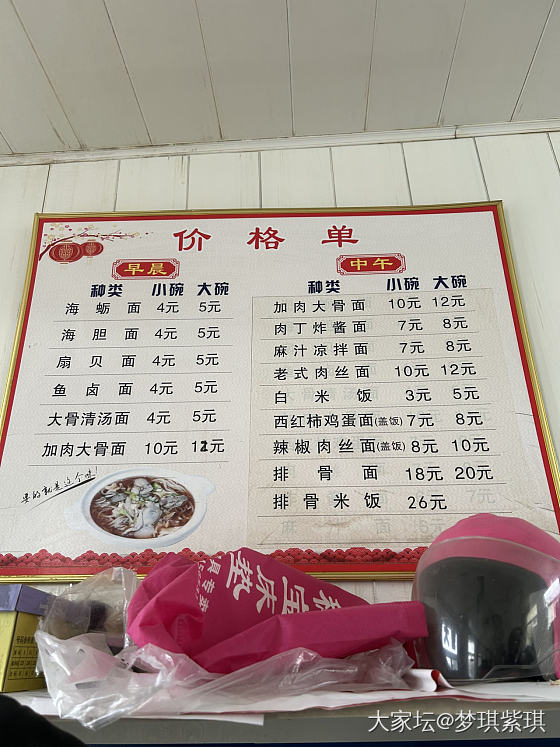 价格单
早晨
种类 小碗 大碗
海蛎面 4元 5元
海胆面 4元 5元
扇贝面 4元 5元
鱼卤面 4元 5元
大骨清汤面 4元 5元
加肉大骨面 10元 12元
要的就是这个味!
中午
种类 小碗 大碗
加肉大骨面 10元 12元
肉丁炸酱面 7元 8元
麻汁凉拌面 7元 8元
老式肉丝面 10元 12元
白米饭 3元 5元
西红柿鸡蛋面(盖饭) 7元 8元
辣椒肉丝面(盖饭) 8元 10元
排骨面 18元 20元
排骨米饭 26元
大家坛@梦琪紫琪